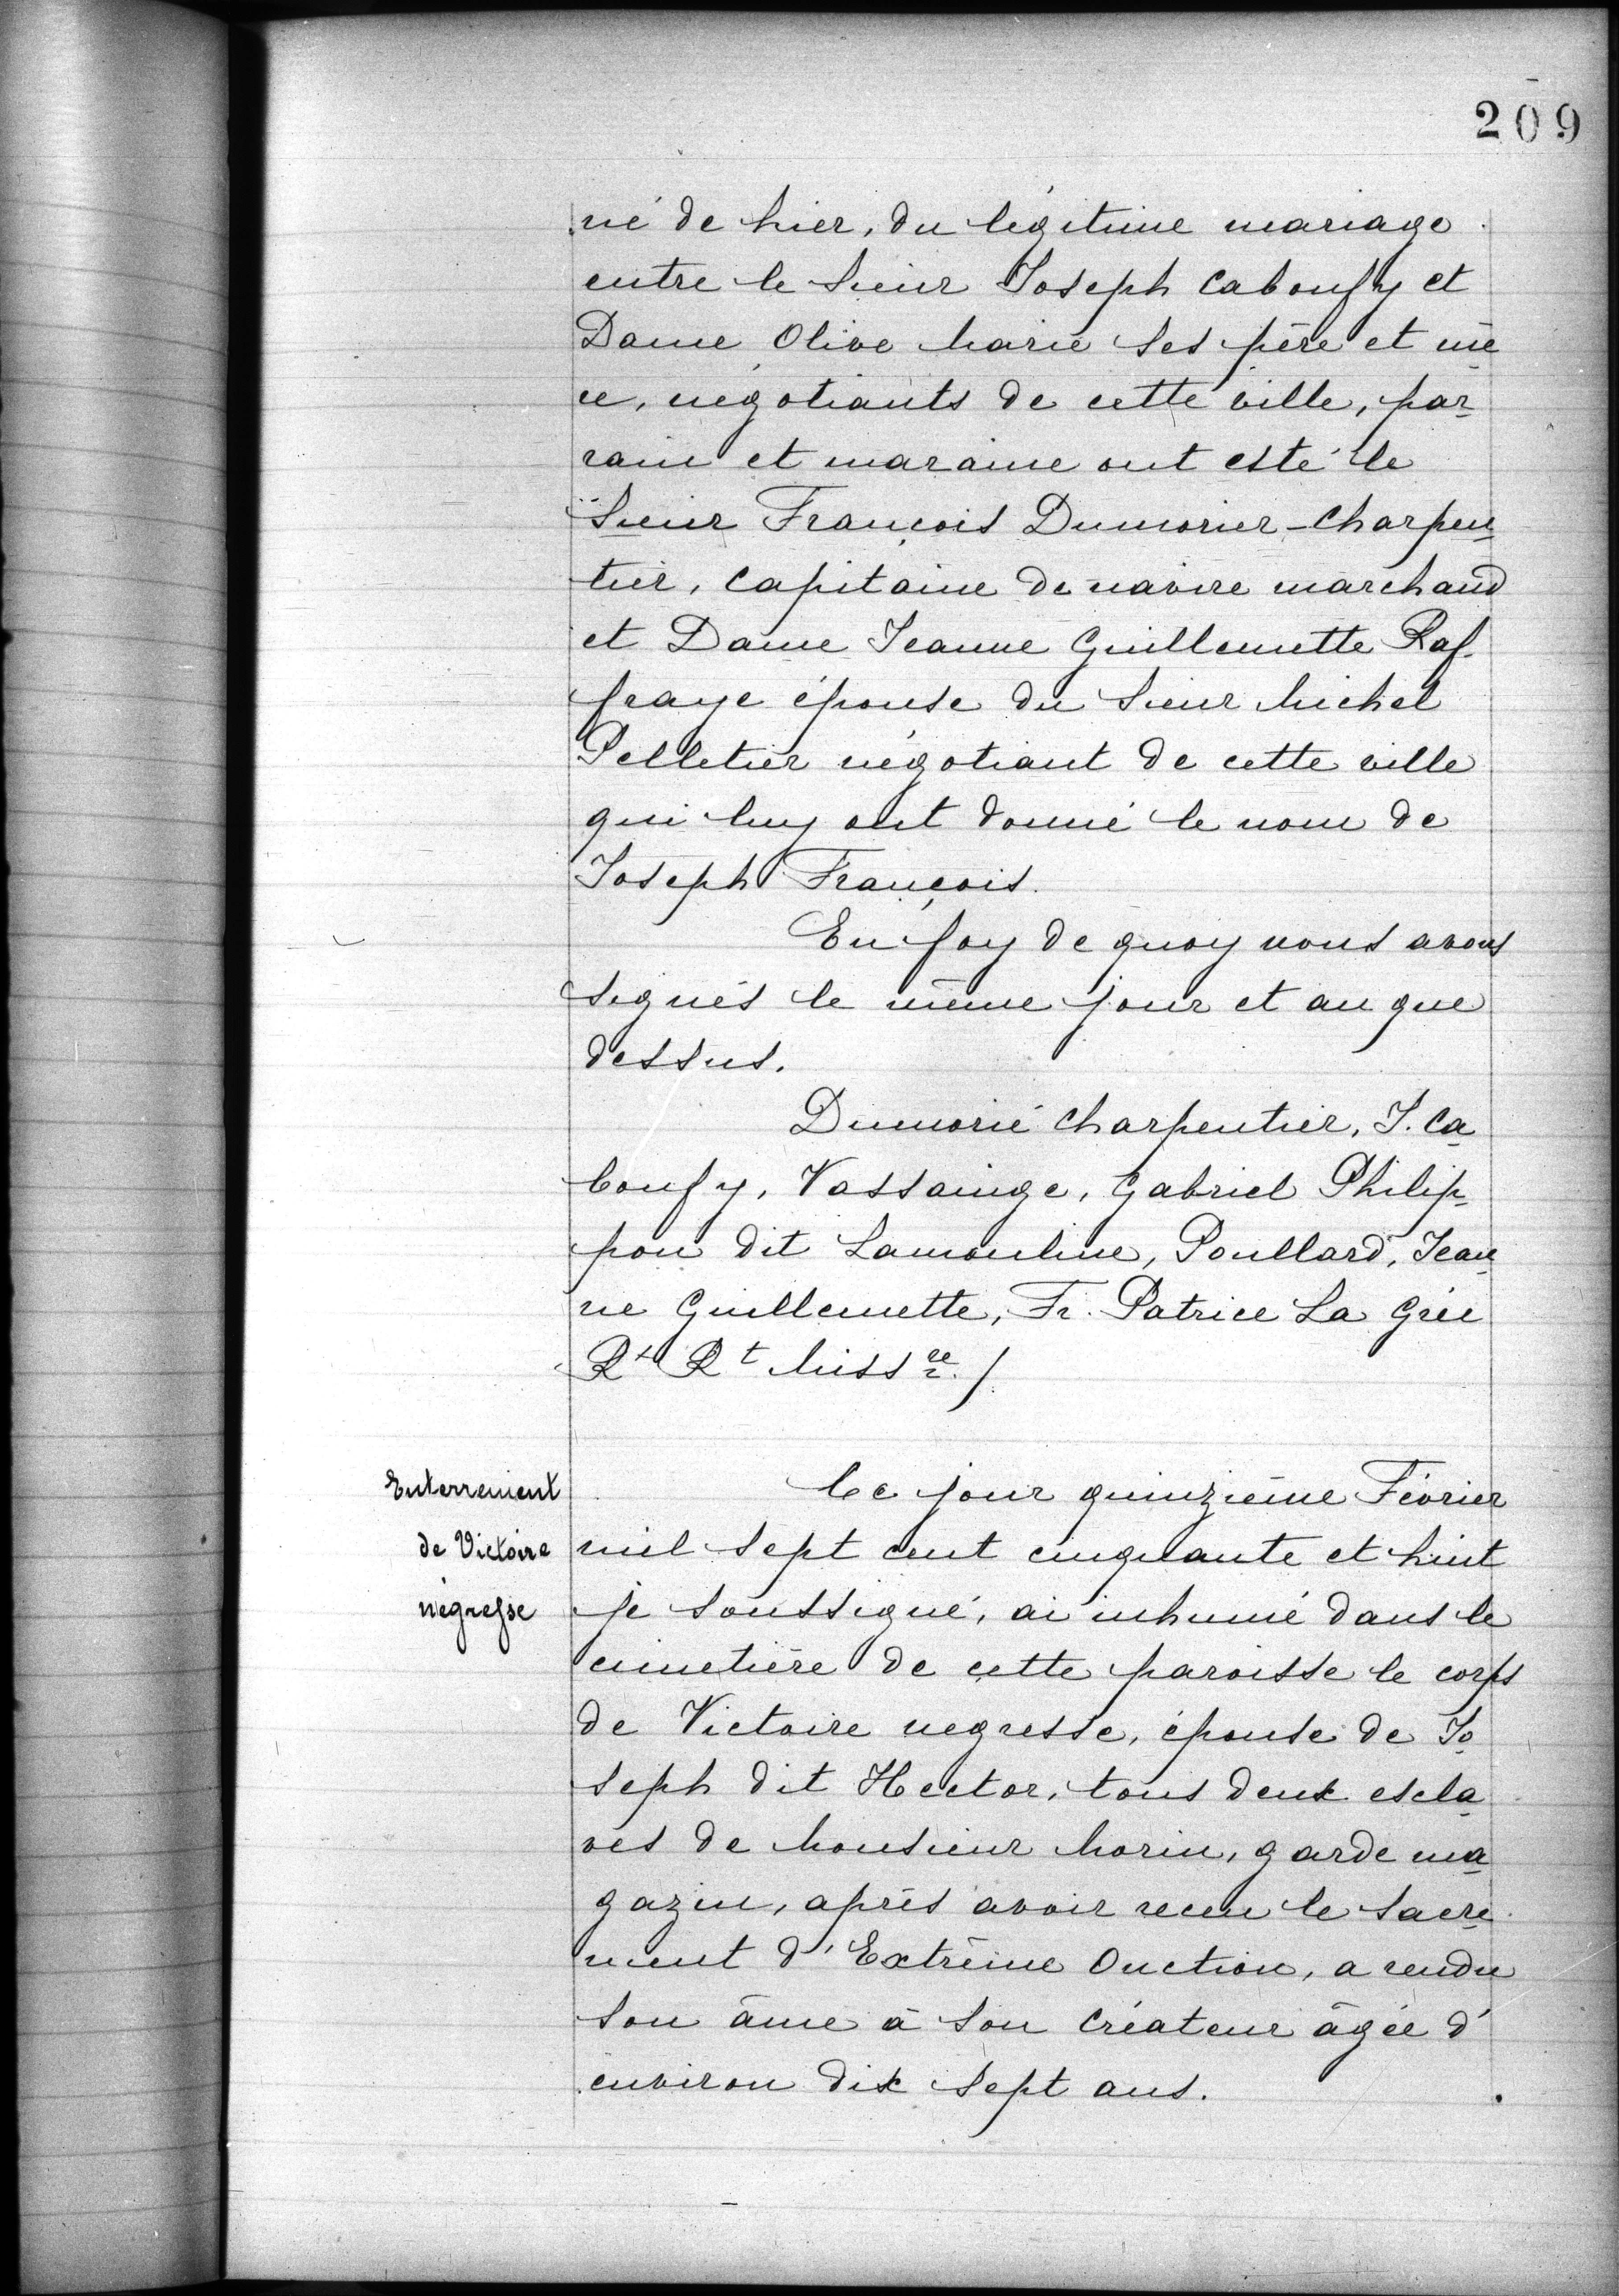 209
né de hier, du légitime mariage
entre le Sieur Joseph Caboufy et
Dame Olive Marie ses père et mè
re, négotiants de cette ville, par
rain et maraine ont esté le
Sieur François Dumorier-Charpen
tier, Capitaine de navire marchand
et Dame Jeanne Guillemette Raf
fraye épouse du Sieur Michel
Pelletier négotiant de cette ville
qui luy ont donné le nom de
Joseph François.
En foy de quoy nous avons
signés le même jour et an que
dessus.
Dumorié Charpentier, J. Ca
boufy, Vassainge, Gabriel Philip
pon dit Lamouline, Poullard, Jean
ne Guillemette, Fr. Patrice La Grée
Rt Rt Missre /.
Enterrement
de Victoire
négresse
Ce jour quinzième Février
mil sept cent cinquante et huit
je soussigné, ai inhumé dans le
cimetière de cette paroisse le corps
de Victoire negresse, épouse de Jo
seph dit Hector, tous deux escla
ves de Monsieur Morin, garde ma
gazin, après avoir receu le Sacre
ment d'Extrême Onction, a rendu
son âme à son Créateur âgée d'
environ dix sept ans.